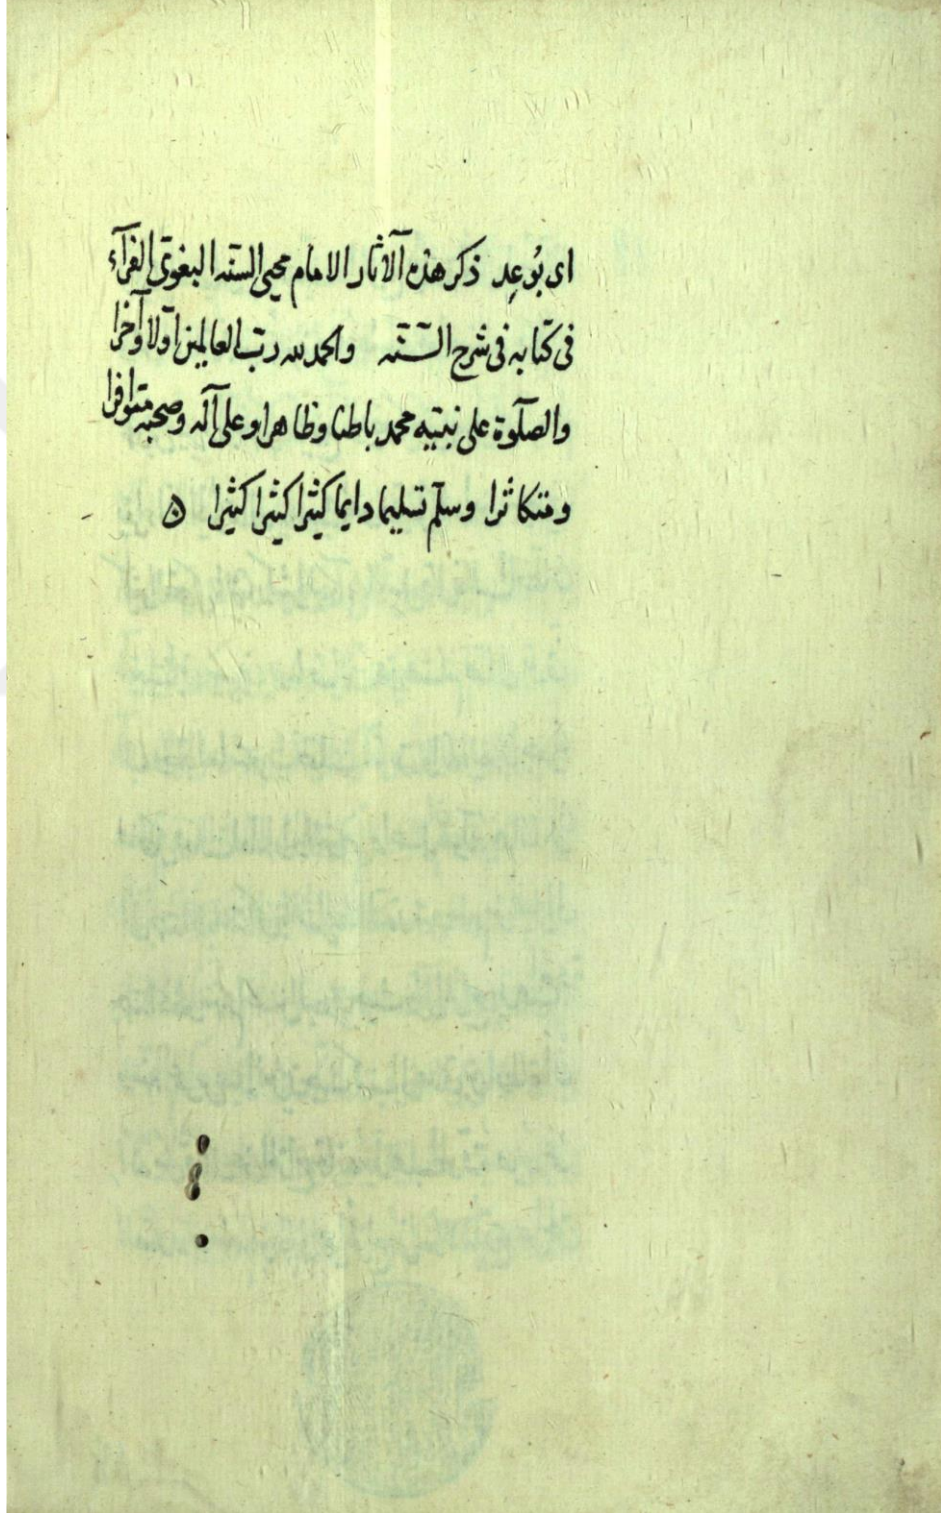 اى بُوعِد ذكر هذه الآثار الامام محيى السنه البغوى الفرآء
فى كتابه فى شرح السّنّه والحمد لله رب العالمين اوّلا وآخرا
والصلوة على نبيّه محمد باطنا وظاهرا وعلى آله وصحبه متوافرا
ومتكاثرا وسلّم تسليما دايما كثيرا كثيرا كثيرا ن